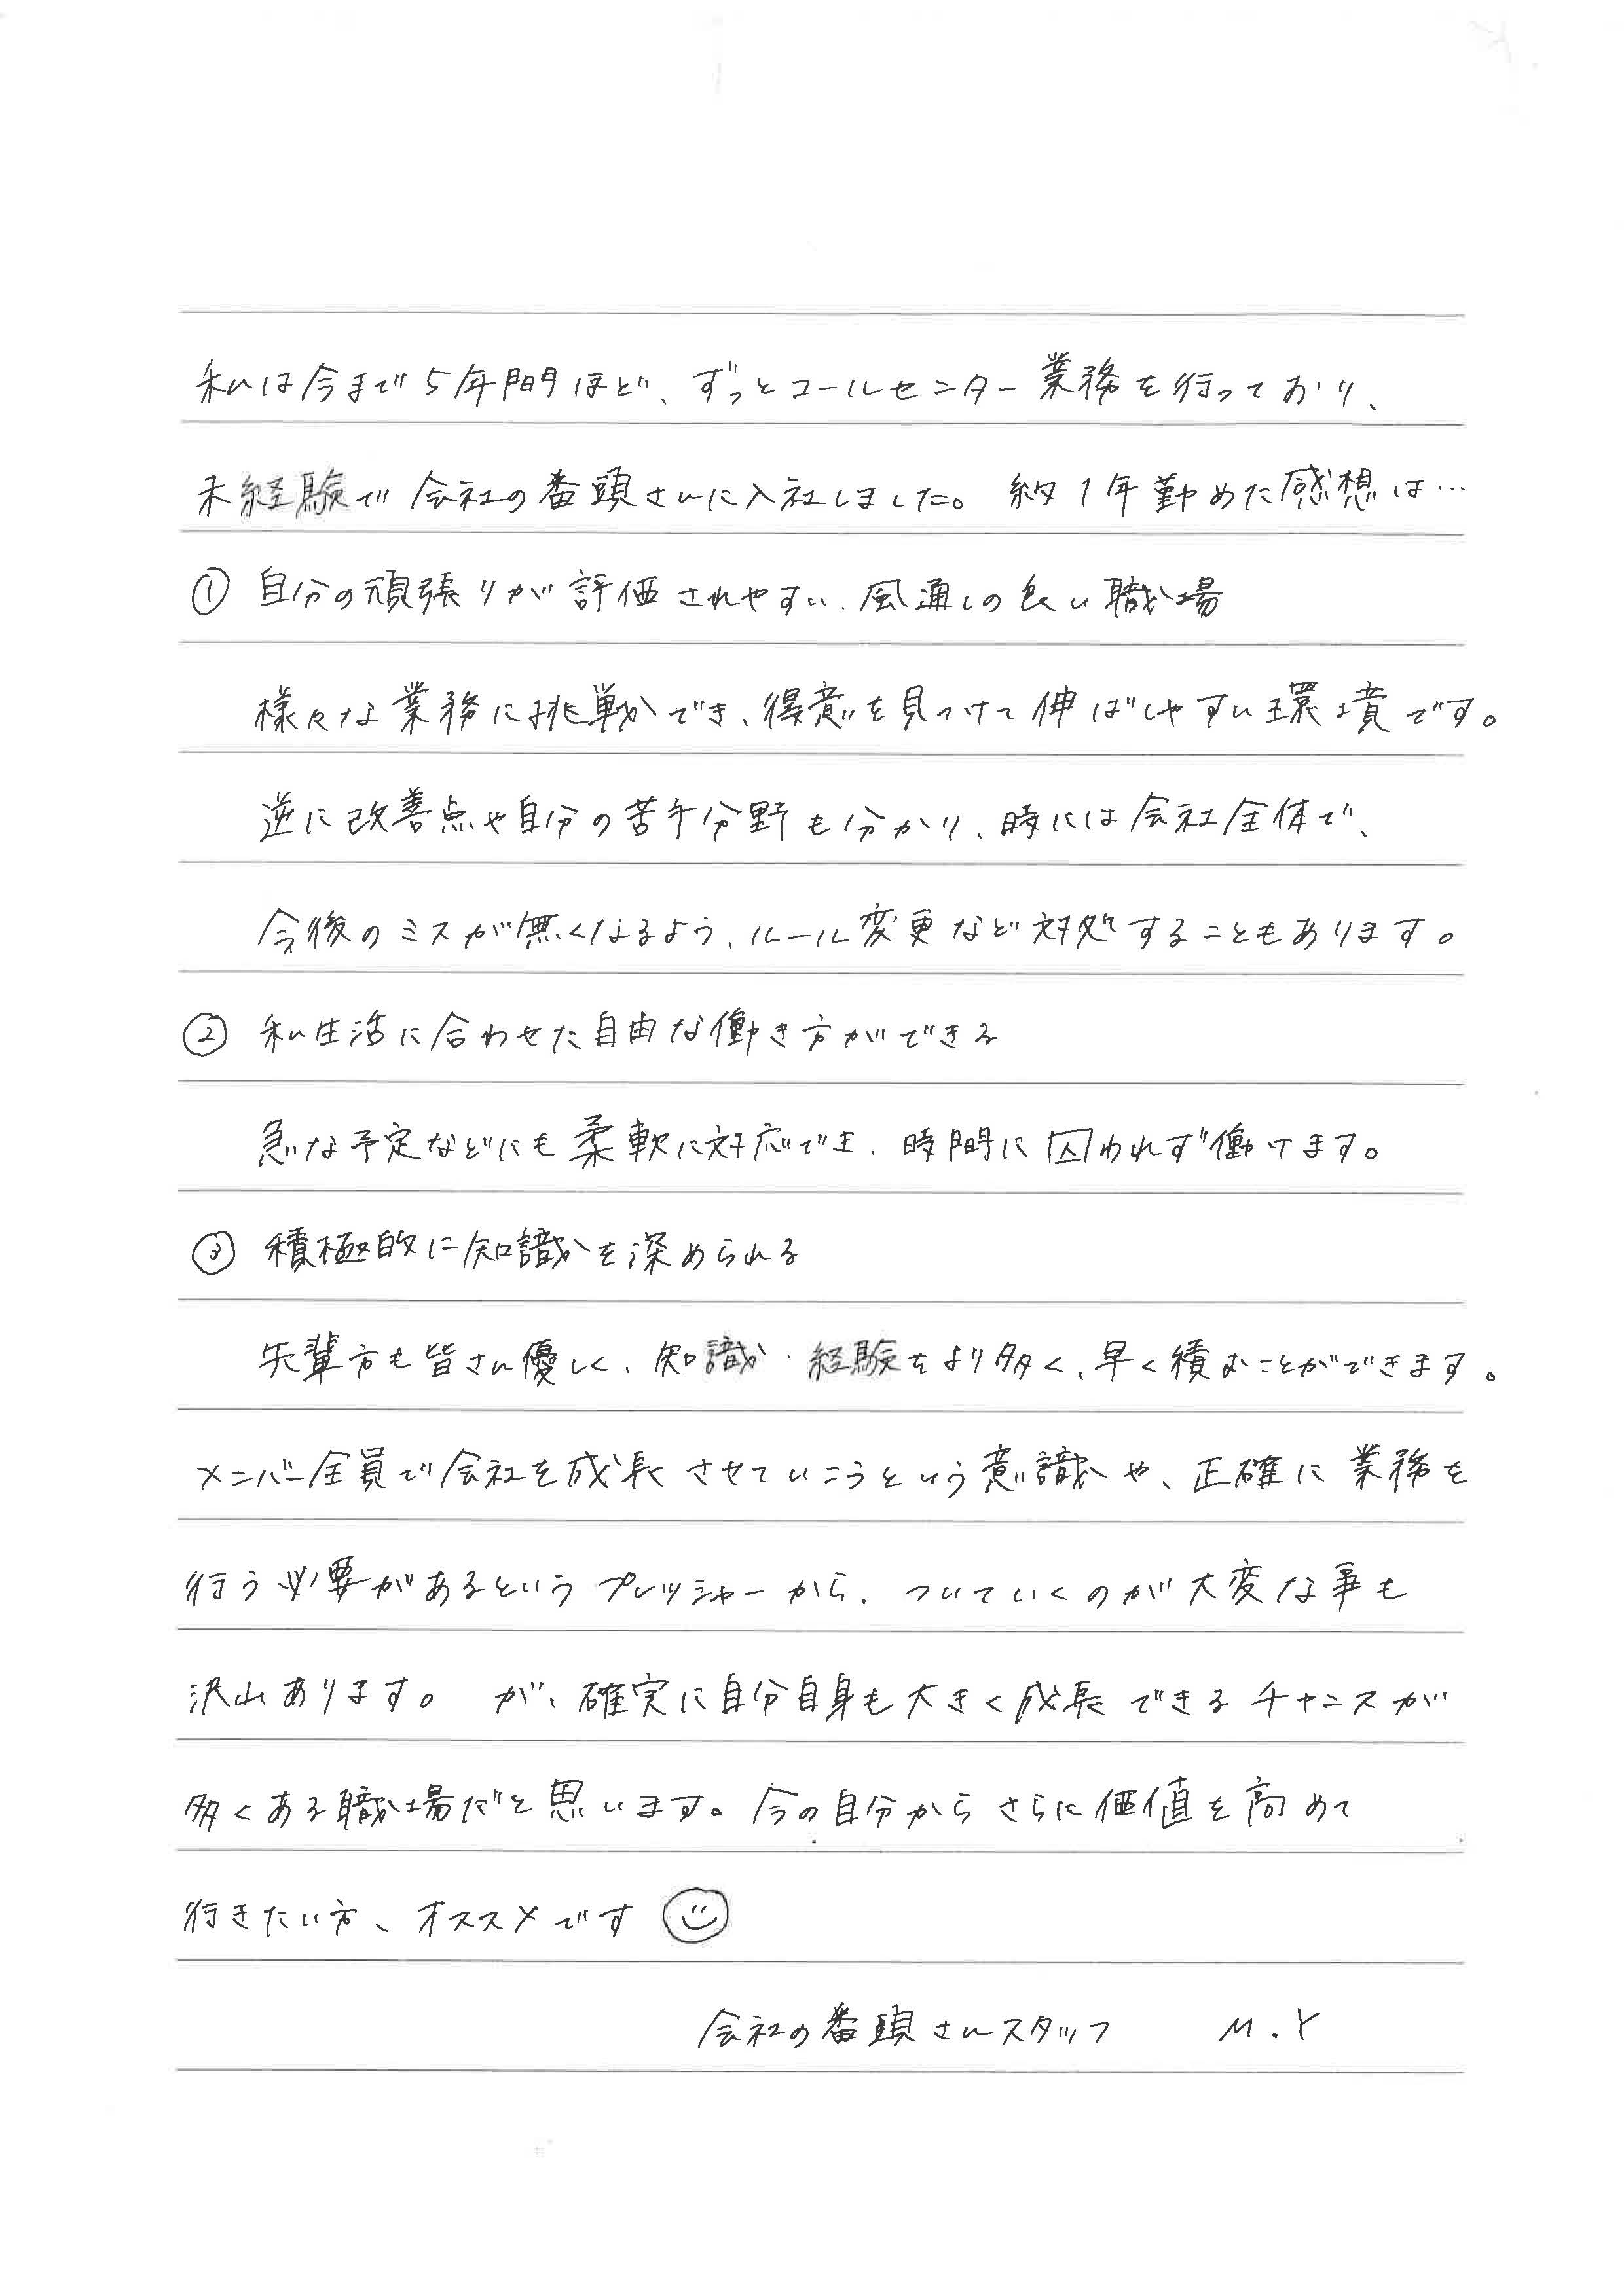 私は今まで5年間ほど、ずっとコールセンター業務を行っており、
未経験で会社の番頭さんに入社しました。約1年勤めた感想は…
① 自分の頑張りが評価されやすい、風通しの良い職場
様々な業務に挑戦でき、得意を見つけて伸ばしやすい環境です。
逆に改善点や自分の苦手分野も分かり、時には会社全体で、
今後のミスが無くなるよう、ルール変更など対処することもあります。
② 私生活に合わせた自由な働き方ができる
急な予定などにも柔軟に対応でき、時間に囚われず働けます。
③ 積極的に知識を深められる
先輩方も皆さん優しく、知識・経験をより多く、早く積むことができます。
メンバー全員で会社を成長させていこうという意識や、正確に業務を
行う必要があるというプレッシャーから、ついていくのが大変な事も
沢山あります。 が、確実に自分自身も大きく成長できるチャンスが
多くある職場だと思います。今の自分からさらに価値を高めて
行きたい方、オススメです
会社の番頭さんスタッフ M.Y